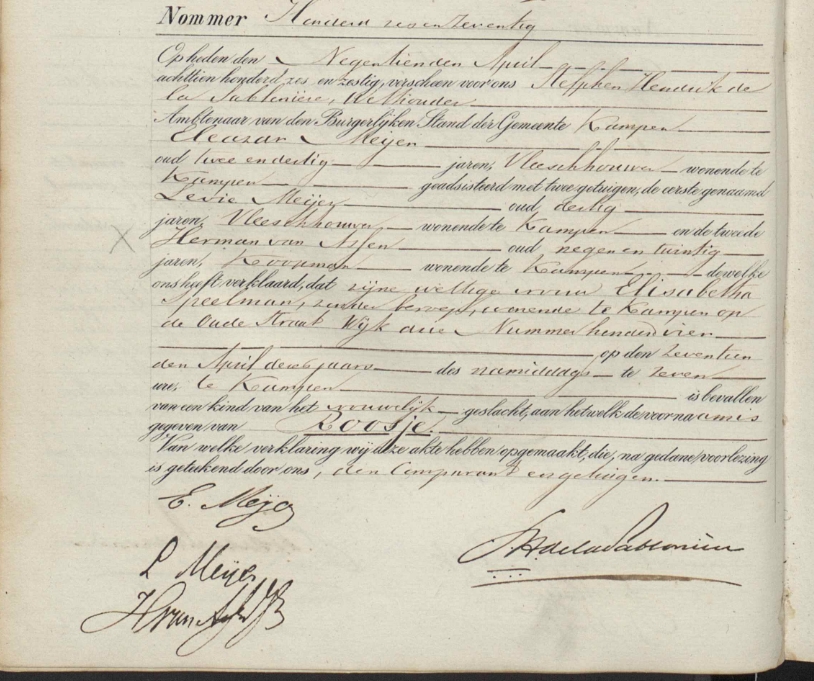 Nommer Honderd zes en zeventig
Op heden den Negentienden April
achttien honderd zes en zestig, verscheen voor ons Stephen Hendrik de
la Sablonière, Wethouder
Ambtenaar van den Burgerlijken Stand der Gemeente Kampen
Eleazar Meijer
oud twee en dertig jaren, Vleeschhouwer wonende te
Kampen geadsisteerd met twee getuigen, de eerste genaamd
Levie Meijer oud dertig
jaren, Vleeschhouwer wonende te Kampen en de tweede
Herman van Assen oud negen en twintig
jaren, Koopman wonende te Kampen dewelke
ons heeft verklaard, dat zijne wettige vrouw Elisabetha
Speelman, zonder beroep, wonende te Kampen op
de Oude Straat Wijk drie Nummer honderd vier
op den zeventien
den April dezes jaars des namiddags te zeven
ure, te Kampen is bevallen
van een kind van het vrouwelijk geslacht, aan hetwelk de voornaam is
gegeven van Roosje.
Van welke verklaring wij deze akte hebben opgemaakt, die, na gedane voorlezing
is geteekend door ons, den Comparant en getuigen.
E. Meijer
SH de la Sablonière
L Meijer
H van Assen